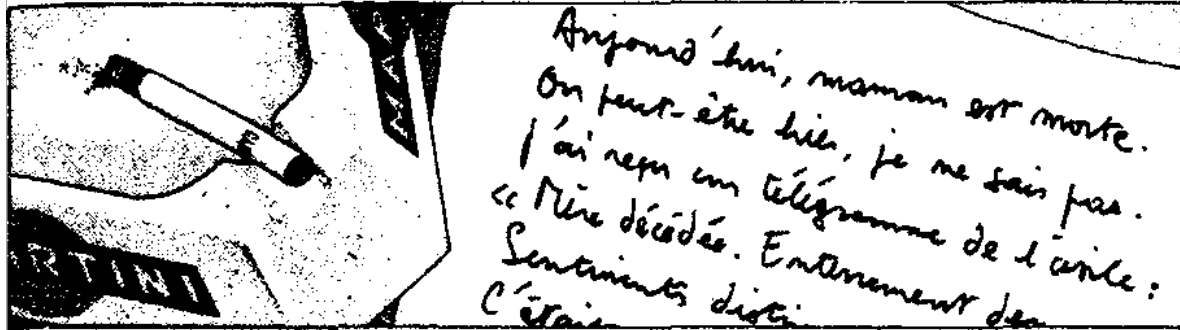 Aujourd'hui, maman est morte.
Ou peut-être hier, je ne sais pas.
J'ai reçu un télégramme de l'asile :
« Mère décédée. Enterrement dem
Sentiments distin
C'étai
RTINI